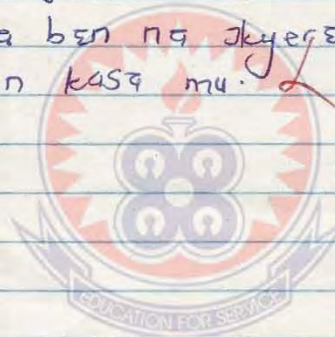 a bɛn na ɔkyerɛ
n kasa mu.
EDUCATION FOR SERVICE